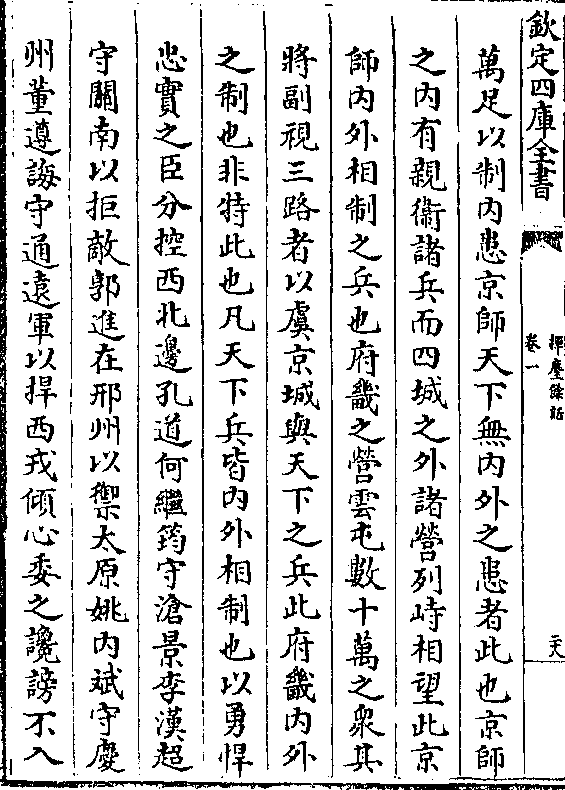 欽定四庫全書
揮麈餘話
卷一
二十六
萬足以制內患京師天下無內外之患者此也京師
之內有親衞諸兵而四城之外諸營列峙相望此京
師內外相制之兵也府畿之營雲屯數十萬之衆其
將副視三路者以虞京城與天下之兵此府畿內外
之制也非特此也凡天下兵皆內外相制也以勇悍
忠實之臣分控西北邊孔道何繼筠守滄景李漢超
守關南以拒敵郭進在邢州以禦太原姚內斌守慶
州董遵誨守通遠軍以捍西戎傾心委之讒謗不入